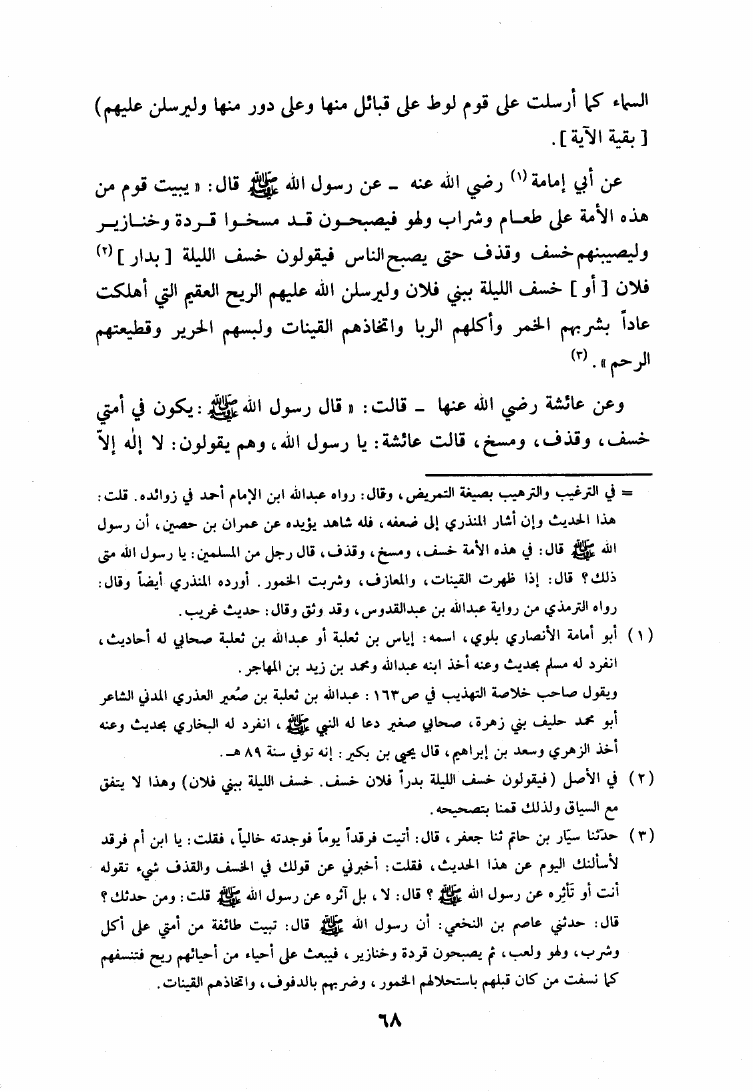 السماء كما أرسلت على قوم لوط على قبائل منها وعلى دور منها وليرسلن عليهم)
[ بقية الآية ].
عن أبي إمامة (١) رضي الله عنه ـ عن رسول الله ﷺ قال: « يبيت قوم من
هذه الأمة على طعـام وشراب ولهو فيصبحـون قـد مسخـوا قـردة وخنـازيـر
وليصيبنهم خسف وقذف حتى يصبح الناس فيقولون خسف الليلة [ بدار ] (٢)
فلان [ أو ] خسف الليلة ببني فلان وليرسلن الله عليهم الريح العقيم التي أهلكت
عاداً بشربهم الخمر وأكلهم الربا واتخاذهم القينات ولبسهم الحرير وقطيعتهم
الرحم ». (٣)
وعن عائشة رضي الله عنها ـ قالت: « قال رسول الله ﷺ: يكون في أمتي
خسف، وقذف، ومسخ، قالت عائشة: يا رسول الله، وهم يقولون: لا إلٰه إلاّ
= في الترغيب والترهيب بصيغة التمريض، وقال: رواه عبدالله ابن الإمام أحمد في زوائده. قلت:
هذا الحديث وإن أشار المنذري إلى ضعفه، فله شاهد يؤيده عن عمران بن حصين، أن رسول
الله ﷺ قال: في هذه الأمة خسف، ومسخ، وقذف، قال رجل من المسلمين: يا رسول الله متى
ذلك؟ قال: إذا ظهرت القينات، والمعازف، وشربت الخمور. أورده المنذري أيضاً وقال:
رواه الترمذي من رواية عبدالله بن عبدالقدوس، وقد وثق وقال: حديث غريب.
(١) أبو أمامة الأنصاري بلوي، اسمه: إياس بن ثعلبة أو عبدالله بن ثعلبة صحابي له أحاديث،
انفرد له مسلم بحديث وعنه أخذ ابنه عبدالله ومحمد بن زيد بن المهاجر.
ويقول صاحب خلاصة التهذيب في ص١٦٣: عبدالله بن ثعلبة بن صُعير العذري المدني الشاعر
أبو محمد حليف بني زهرة، صحابي صغير دعا له النبي ﷺ، انفرد له البخاري بحديث وعنه
أخذ الزهري وسعد بن إبراهيم، قال يحيى بن بكير: إنه توفي سنة ٨٩ هـ.
(٢) في الأصل (فيقولون خسف الليلة بدراً فلان خسف. خسف الليلة ببني فلان) وهذا لا يتفق
مع السياق ولذلك قمنا بتصحيحه.
(٣) حدّثنا سيّار بن حاتم ثنا جعفر، قال: أتيت فرقداً يوماً فوجدته خالياً، فقلت: يا ابن أم فرقد
لأسألنك اليوم عن هذا الحديث، فقلت: أخبرني عن قولك في الخسف والقذف شيء تقوله
أنت أو تأثِره عن رسول الله ﷺ؟ قال: لا، بل آثره عن رسول الله ﷺ قلت: ومن حدثك؟
قال: حدثني عاصم بن النخعي: أن رسول الله ﷺ قال: تبيت طائفة من أمتي على أكل
وشرب، ولهو ولعب، ثم يصبحون قردة وخنازير، فيبعث على أحياء من أحيائهم ريح فتنسفهم
كما نسفت من كان قبلهم باستحلالهم الخمور، وضربهم بالدفوف، واتخاذهم القينات.
٦٨